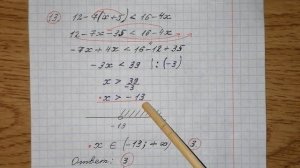 13) 12-7(x+5) < 16-4x
12-7x-35 < 16-4x
-7x+4x < 16-12+35
-3x < 39 | :(-3)
x > 39/-3
x > -13
-13
x ∈ (-13; +∞) 3
Ответ: 3